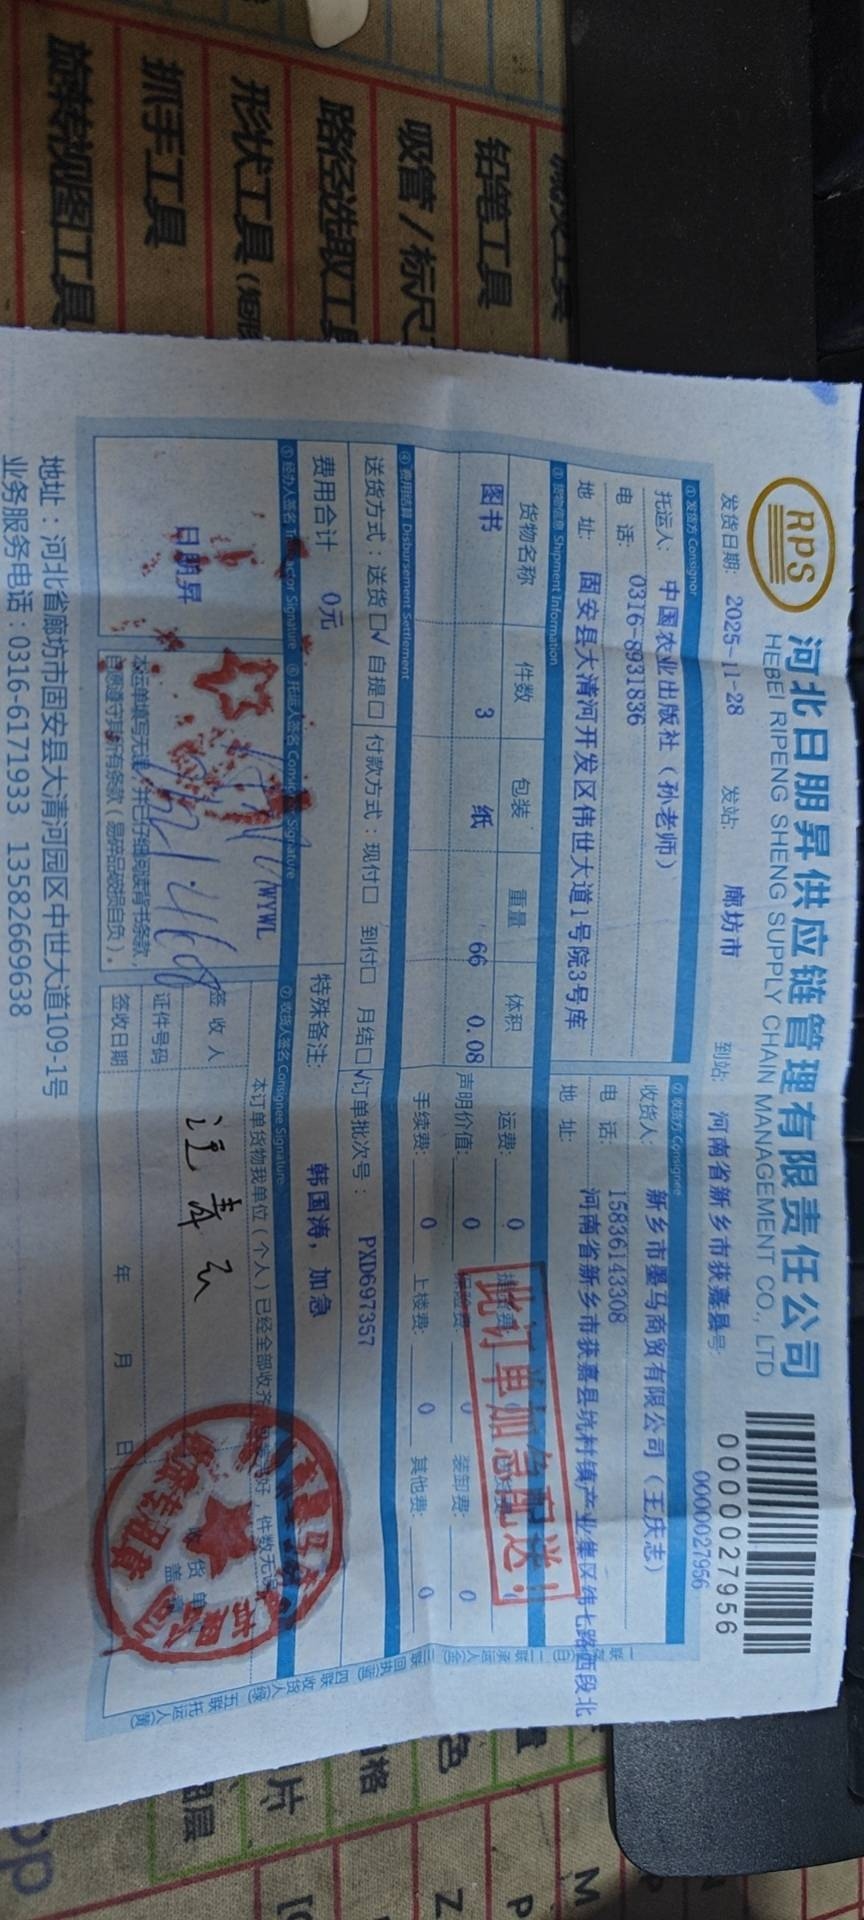 RPS
河北日朋昇供应链管理有限责任公司
HEBEI RIPENG SHENG SUPPLY CHAIN MANAGEMENT CO., LTD
0000027956
0000027956
发货日期: 2025-11-28 发站: 廊坊市 到站: 河南省新乡市获嘉县 号:
① 发货方 Consignor ② 收货方 Consignee
托运人: 中国农业出版社（孙老师） 收货人: 新乡市墨马商贸有限公司（王庆志）
电 话: 0316-8931836 电 话: 15836143308
地 址: 固安县大清河开发区伟世大道1号院3号库 地 址: 河南省新乡市获嘉县亢村镇产业集区纬七路西段北
③ 货物信息 Shipment Information
货物名称 件数 包装 重量 体积 运费: 0
图书 3 纸 66 0.08 声明价值: 0 保险费: 0 装卸费: 0
手续费: 0 上楼费: 0 其他费: 0
此订单加急配送!
④ 费用结算 Disbursement Settlement
送货方式：送货□√ 自提□ 付款方式：现付□ 到付□ 月结□√ 订单批次号： PXD697357
费用合计 0元 特殊备注: 韩国涛，加急
⑤ 经办人签名 Transactor Signature ⑥ 托运人签名 Consignor Signature ⑦ 收货人签名 Consignee Signature
日朋昇
WYWL
本运单填写无误，并已仔细阅读背书条款，
自愿遵守其所有条款（易碎品破损自负）。
本订单货物我单位（个人）已经全部收齐
签 收 人
证件号码
签收日期 年 月 日
地址：河北省廊坊市固安县大清河园区中世大道109-1号
业务服务电话：0316-6171933 13582669638
铅笔工具
吸管 / 标尺
路径选取工具
形状工具
抓手工具
旋转视图工具
图层
片
色
M
P
Z